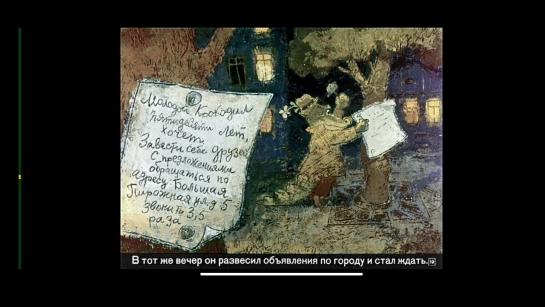 Молодой Кокодил
пятидесяти лет,
хочет
Завести себе друзей
С предложениями
обращаться по
адресу: Большая
Пирожная ул. д 5
Звонить 3,5
раза
В тот же вечер он развесил объявления по городу и стал ждать.